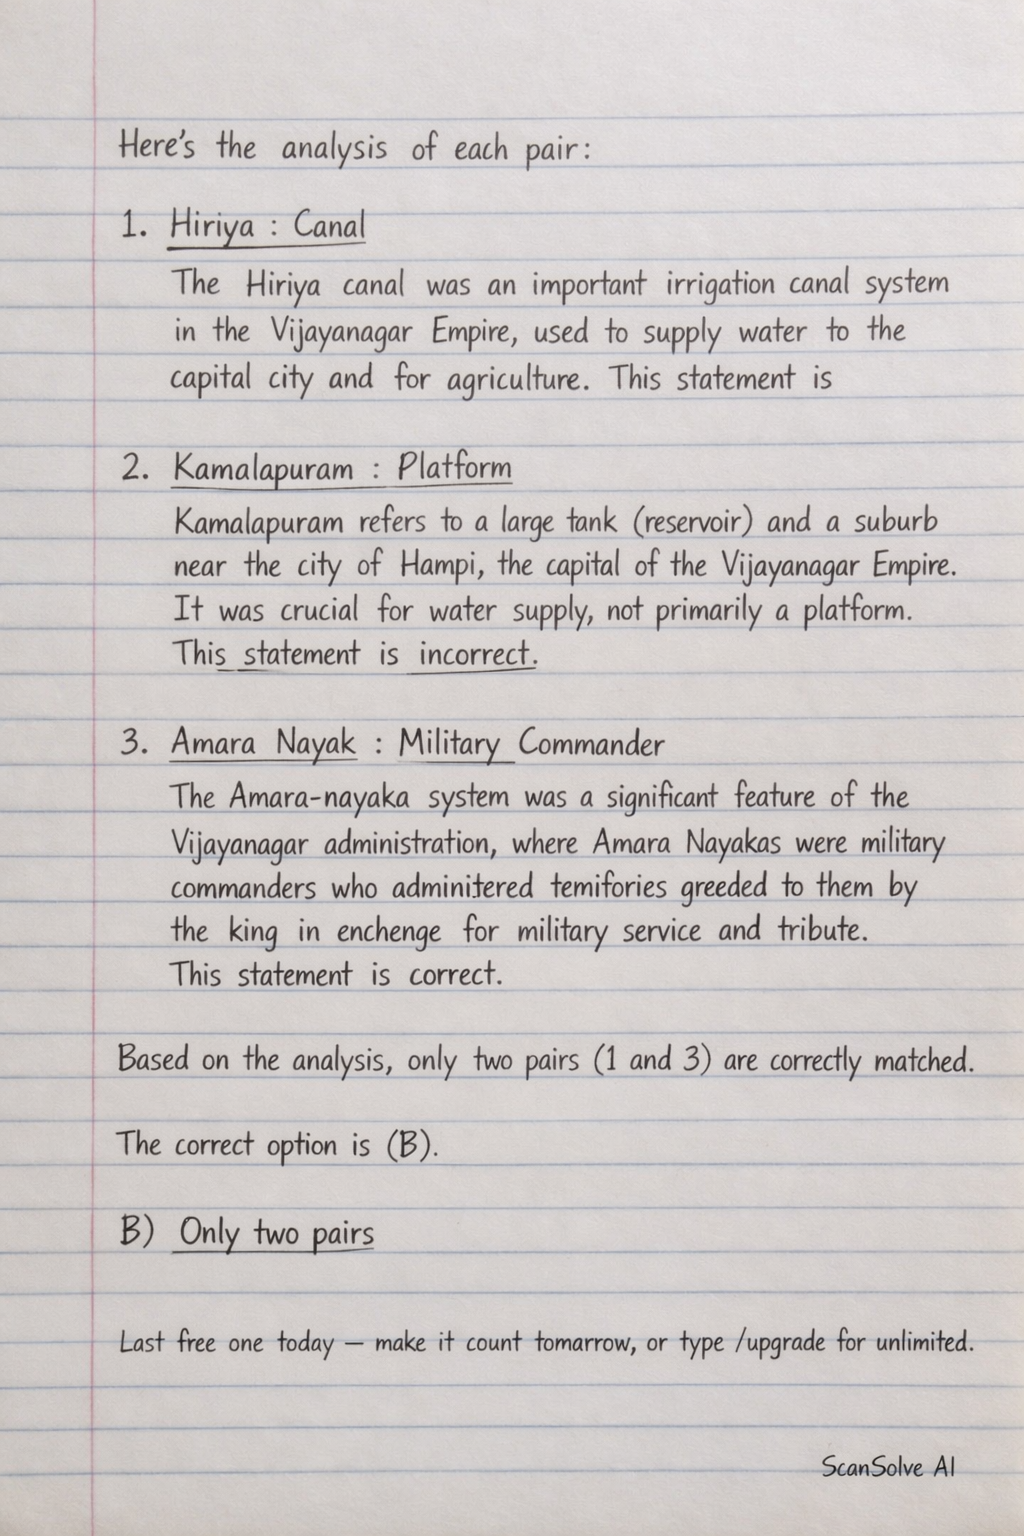 Here's the analysis of each pair:
1. Hiriya : Canal
The Hiriya canal was an important irrigation canal system
in the Vijayanagar Empire, used to supply water to the
capital city and for agriculture. This statement is
2. Kamalapuram : Platform
Kamalapuram refers to a large tank (reservoir) and a suburb
near the city of Hampi, the capital of the Vijayanagar Empire.
It was crucial for water supply, not primarily a platform.
This statement is incorrect.
3. Amara Nayak : Military Commander
The Amara-nayaka system was a significant feature of the
Vijayanagar administration, where Amara Nayakas were military
commanders who adminitered temifories greeded to them by
the king in enchenge for military service and tribute.
This statement is correct.
Based on the analysis, only two pairs (1 and 3) are correctly matched.
The correct option is (B).
B) Only two pairs
Last free one today — make it count tomarrow, or type /upgrade for unlimited.
ScanSolve AI